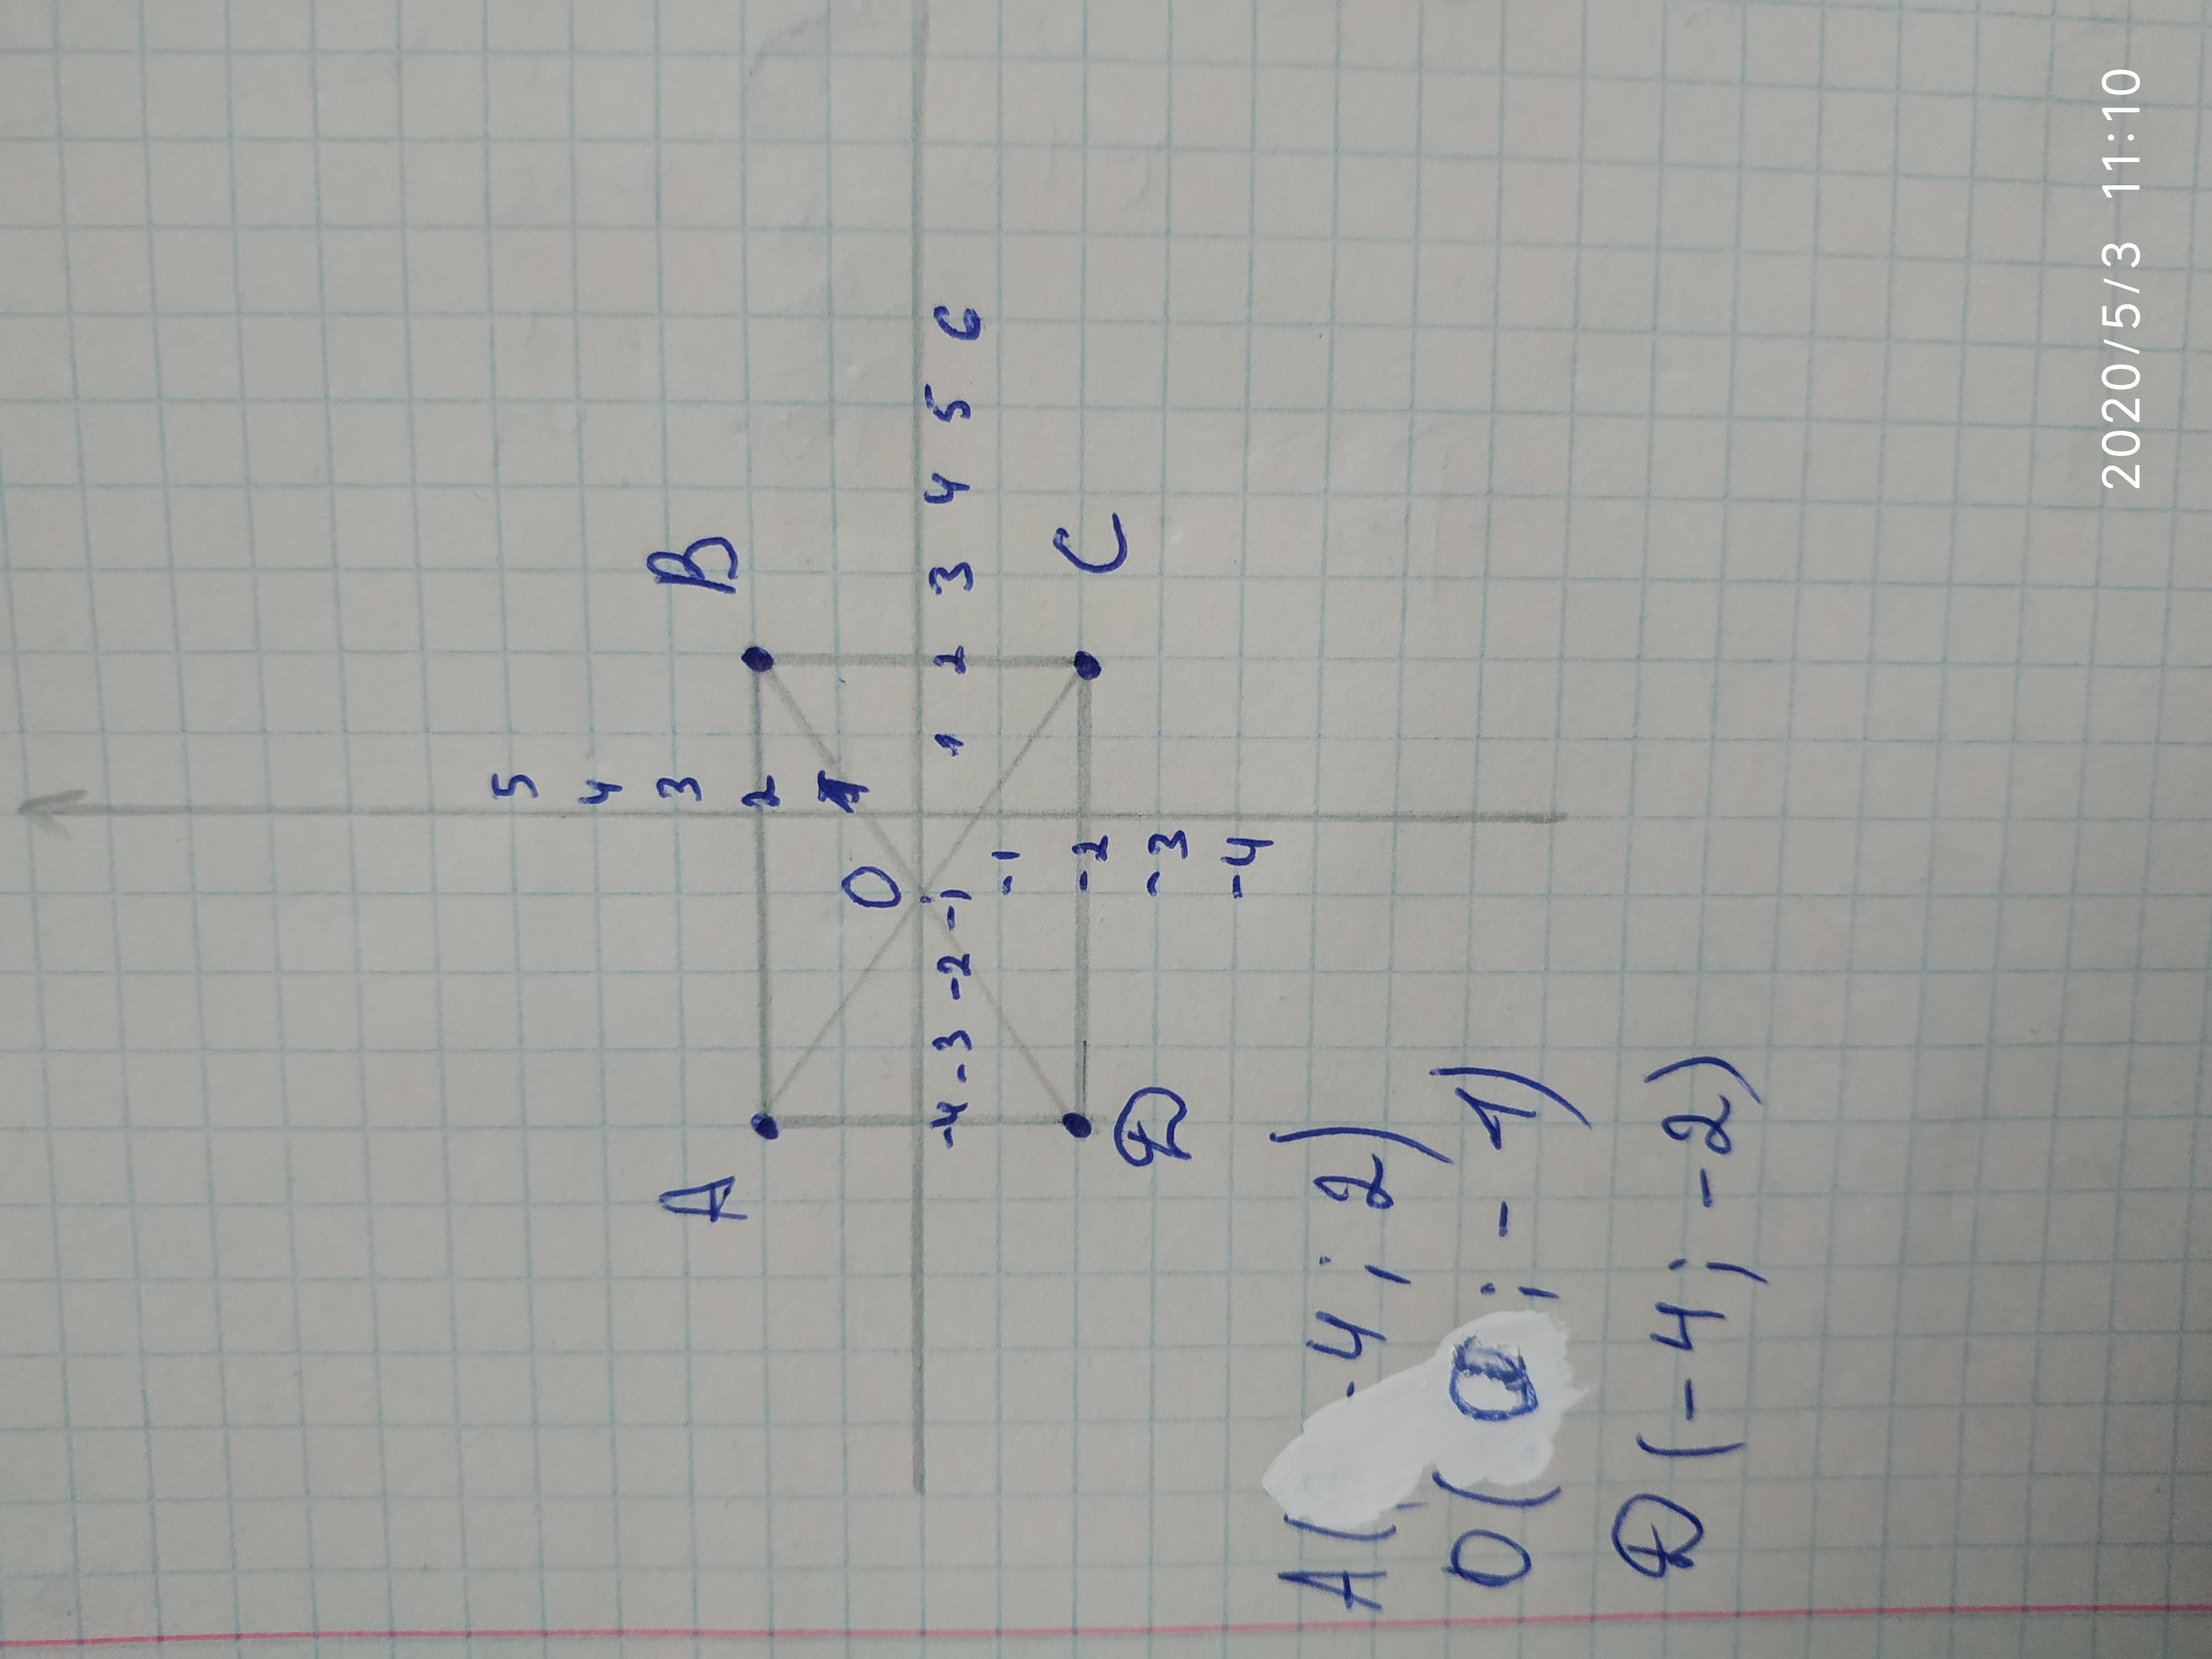 5
4
3
A B
2
1
O
-4 -3 -2 -1 1 2 3 4 5 6
-1
-2 C
D -3
-4
A(-4; 2)
O(0; -1)
D(-4; -2)
2020/5/3 11:10